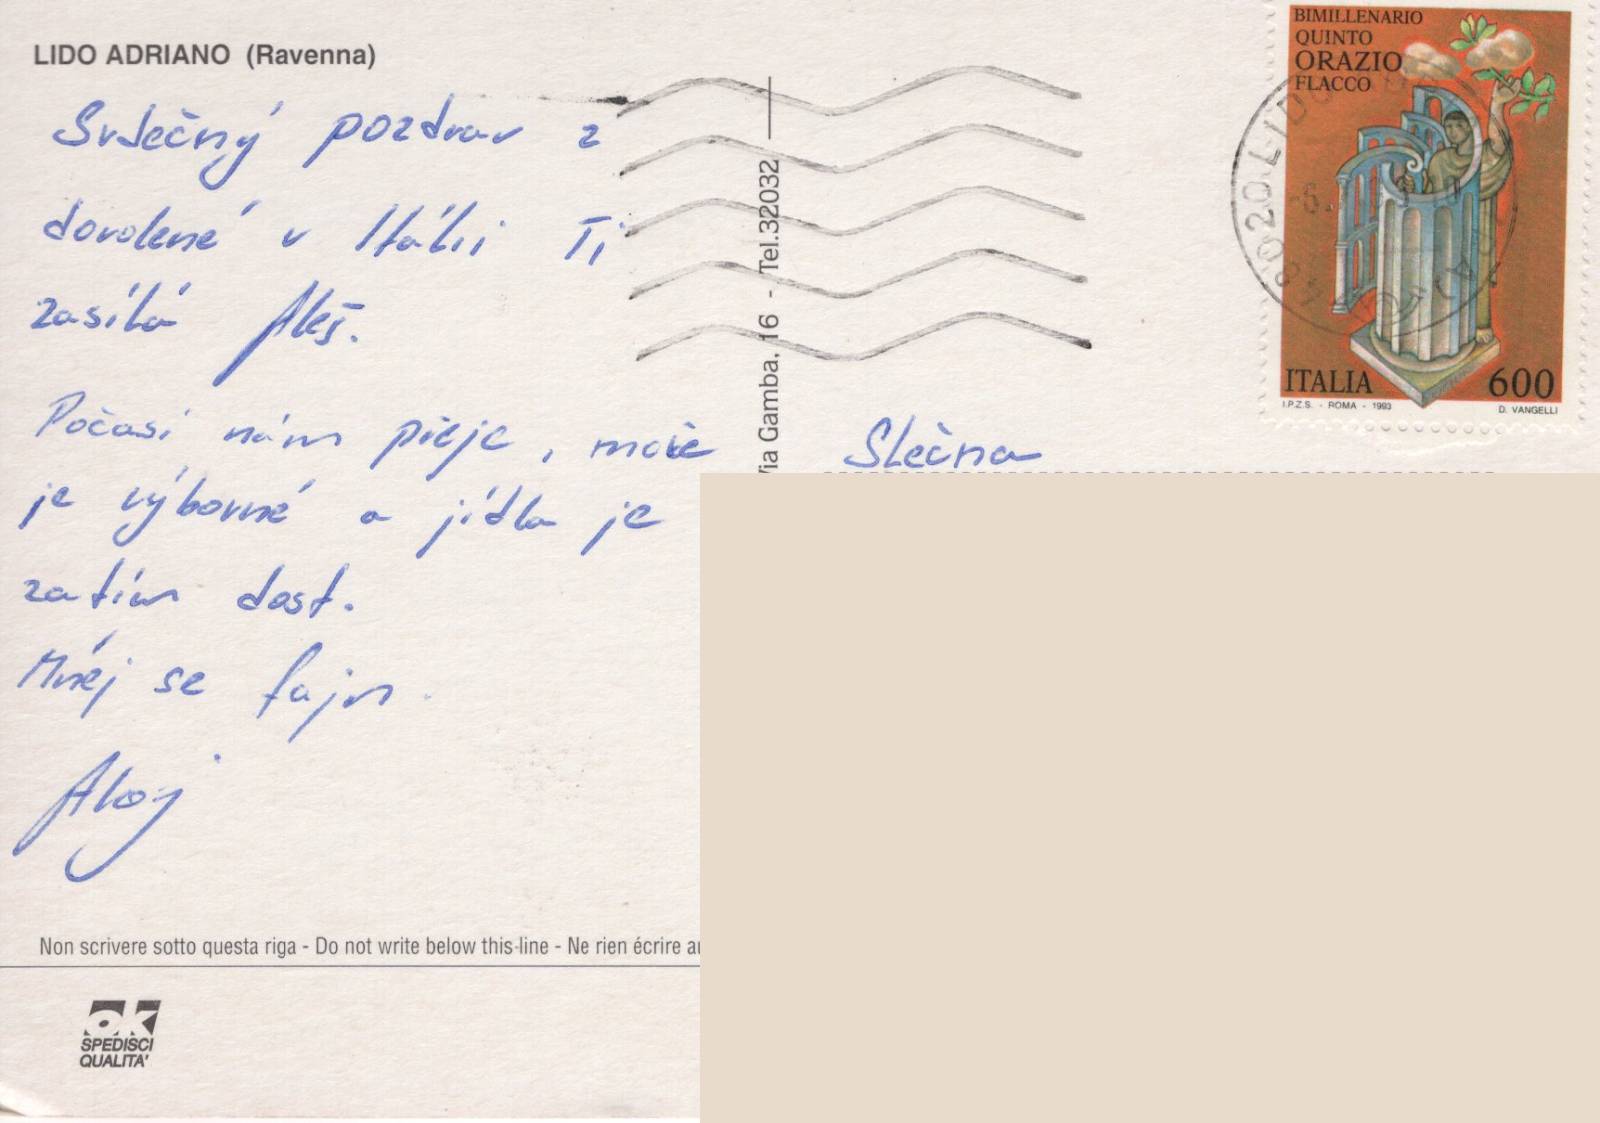 LIDO ADRIANO (Ravenna)
Srdečný pozdrav z
dovolené v Itálii Ti
zasílá Aleš.
Počasí nám přeje, moře
je výborné a jídla je
zatím dost.
Měj se fajn.
Ahoj
Non scrivere sotto questa riga - Do not write below this line - Ne rien écrire
ok
SPEDISCI
QUALITA'
Via Gamba, 16 - Tel.32032
BIMILLENARIO
QUINTO
ORAZIO
FLACCO
ITALIA 600
I.P.Z.S. - ROMA - 1993 D. VANGELLI
Slečna